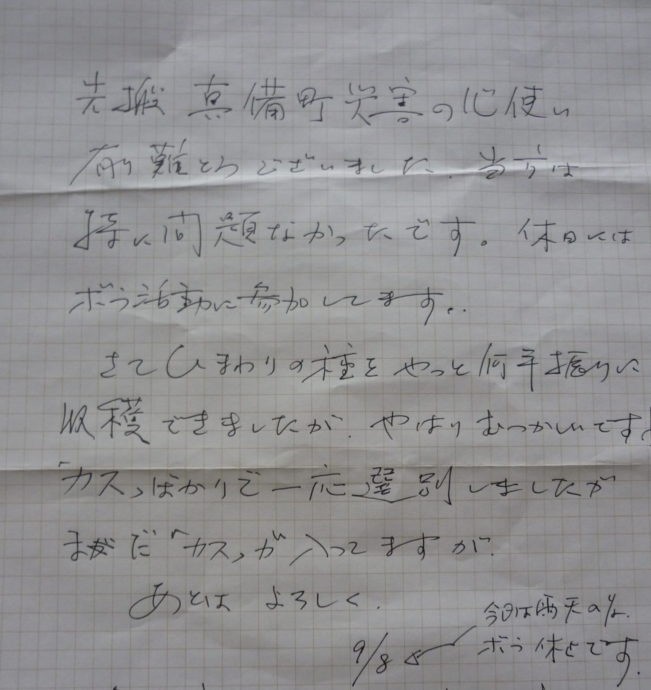 先搬 真備町災害の心使い
有り難とうございました。当方は
特に問題なかったです。休日には
ボラ活動に参加してます。
さてひまわりの種をやっと何年振りに
収穫できましたが、やはりむつかしいです!
「カス」ばかりで一応選別しましたが
まだ「カス」が入ってますが、
あとは よろしく。
今日は雨天の
ボラ休とです。
9/8